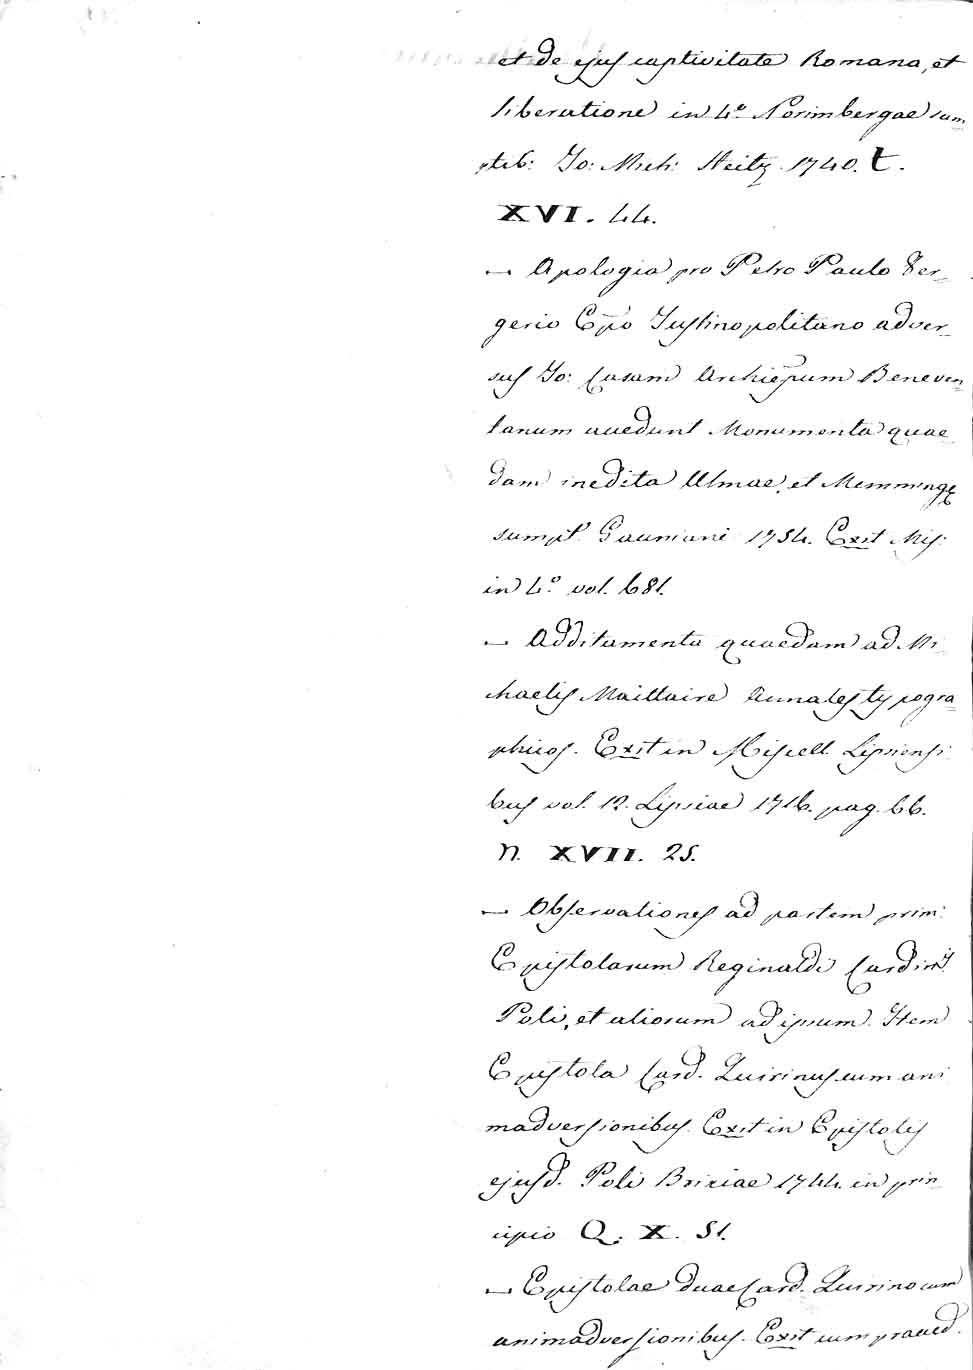 et de ejus captivitate Romana, et
liberatione in 4.º Norimbergae sum
ptib: Jo: Mich: Seitz 1740. t.
XVI. 44.
— Apologia pro Petro Paulo Ver=
gerio Ep̃o Justinopolitano adver=
sus Jo: Casam Archiep̃um Beneven
tanum accedunt Monumenta quae
dam inedita Ulmae, et Memming
sumpt. Gaumiani 1754. Exit Mis:
in 4.º vol. 681.
— Additamenta quaedam ad Mi
chaelis Maittaire Annales typogra=
phicos. Exit in Miscell. Lipsiensi
bus vol. 12. Lipsiae 1716. pag. 66.
N. XVII. 25.
— Observationes ad partem prim:
Epistolarum Reginaldi Cardin.
Poli, et aliorum ad ipsum. Item
Epistola Card. Quirinus cum ani
madversionibus. Exit in Epistolis
ejusd. Poli Brixiae 1744. in prin=
cipio Q. X. 51.
— Epistolae duae Card. Quirino cum
animadversionibus. Exit cum praeced.